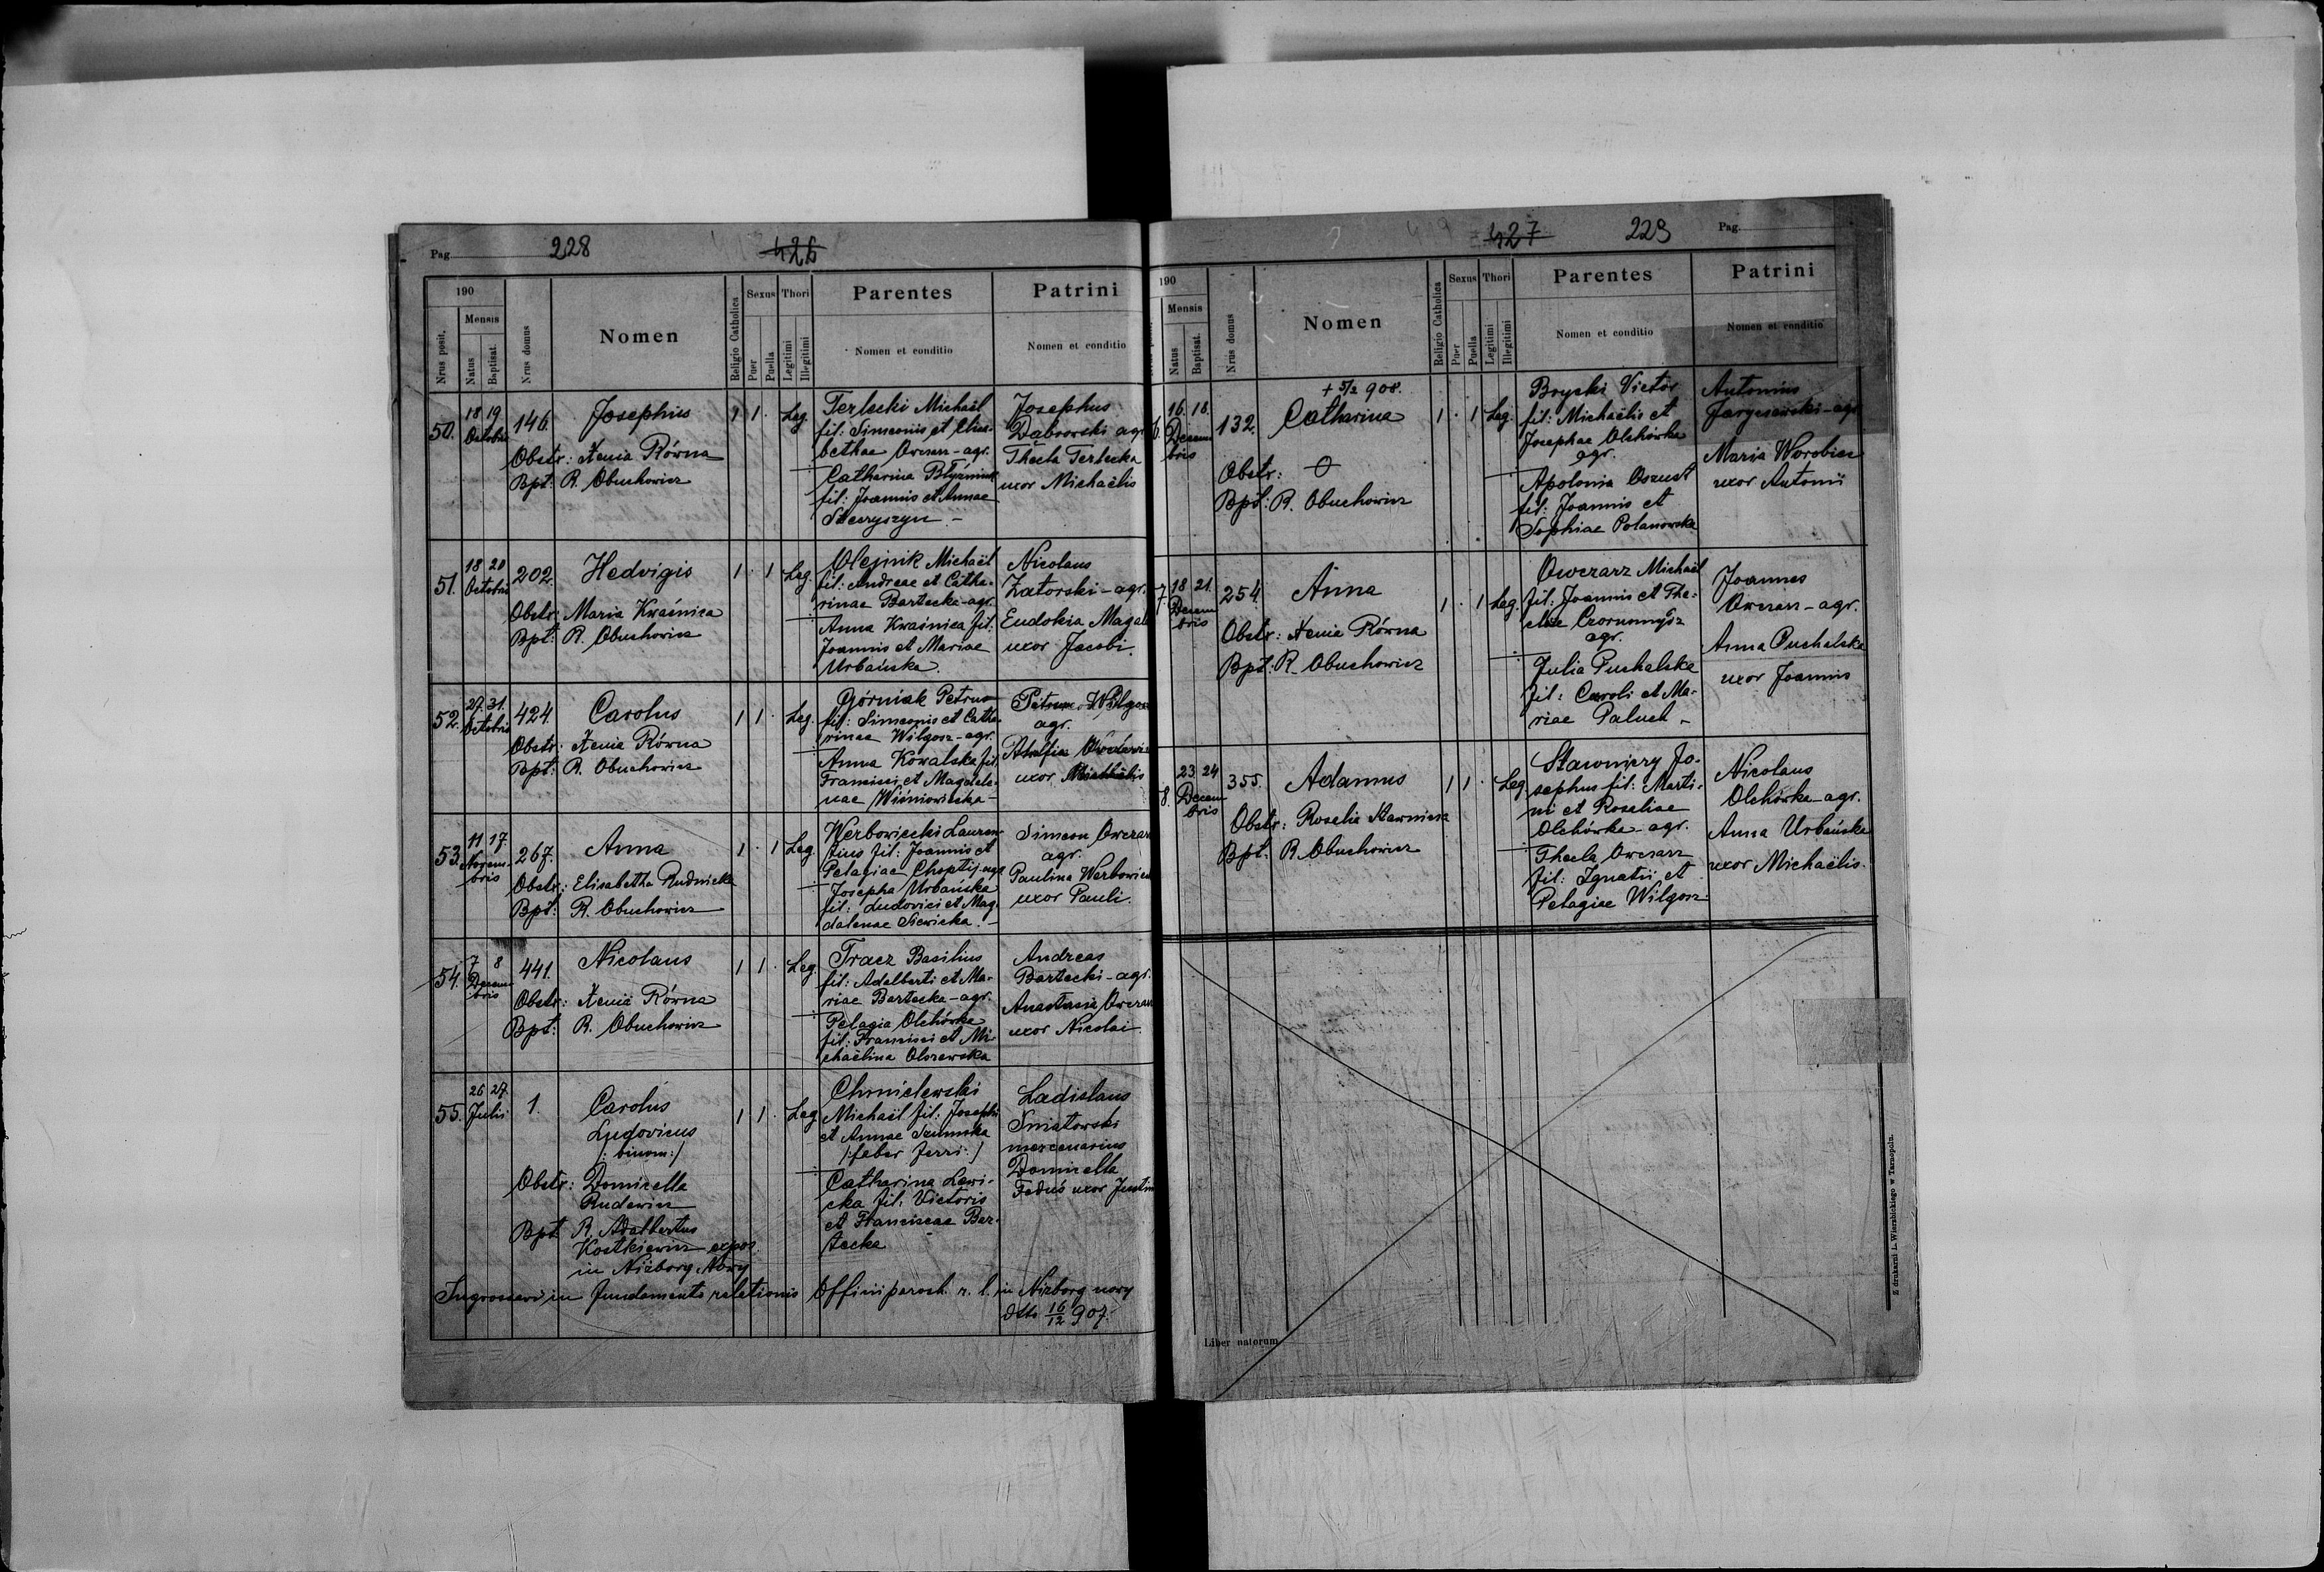 Pag. 228 426
190
Mensis
Nrus posit.
Natus
Baptisat.
Nrus domus
Nomen
Religio Catholica
Sexus
Puer
Puella
Thori
Legitimi
Illegitimi
Parentes
Nomen et conditio
Patrini
Nomen et conditio
50. 18 19 Octobris 146. Josephus 1 1 . Leg.
Obstr: Xenia Równa
Bpt: R. Obuchowicz
Terlecki Michaël
fil. Simeonis et Elisa-
bethae Owczarz - agr.
Catharina
fil: Joannis et Annae
Josephus
Dąbrowski agr.
Thecla Terlecka
uxor Michaëlis
51. 18 20 Octobris 202. Hedvigis 1 . 1 Leg.
Obstr. Maria Kwaśnica
Bpt: R. Obuchowicz
Olejnik Michaël
fil: Andreae et Catha-
rinae Bartecka - agr.
Anna Kwaśnica fil:
Joannis et Mariae
Urbańska.
Nicolaus
Zatorski - agr.
Eudokia
uxor Jacobi.
52. 27. 31. Octobris 424. Carolus 1 1 . Leg.
Obstr: Xenia Równa
Bpt: R. Obuchowicz
Górniak Petrus
fil: Simeonis et Catha-
rinae Wilgosz - agr.
Anna Kowalska fil.
Francisci et Magdale-
nae Wiśniowiecka -
agr.
uxor Michaëlis
53. 11 17. Novem-
bris 267. Anna 1 . 1 Leg.
Obstr: Elisabetha Rudnicka
Bpt: R. Obuchowicz
Werbowiecki Lauren-
tius fil: Joannis et
Pelagiae Choptij - agr.
Josepha Urbańska
fil: Ludovici et Mag-
dalenae Siewicka. -
Simeon Owczarz
agr.
Paulina
uxor Pauli.
54. 7 8 Decem-
bris 441. Nicolaus 1 1 . Leg.
Obstr: Xenia Równa
Bpt: R. Obuchowicz
Tracz Basilius
fil: Adalberti et Ma-
riae Bartecka - agr.
Pelagia Olchówka
fil: Francisci et Mi-
chaëlina Olszewska
Andreas
Bartecki - agr.
Anastasia Owczarz
uxor Nicolai.
55. 26 27. Julii 1. Carolus 1 1 . Leg.
Ludovicus
/: binom :/
Obstr: Domicella
Rudewicz
Bpt R. Adalbertus
Kostkiewicz expos.
in Niżborg Nowy
Chmielewski
Michaël fil: Josephi
et Annae Szumska
/: faber ferri :/
Catharina Lewi-
cka fil: Victoris
et Franciscae Bar-
tecka
Ladislaus
Śniatowski
mercenarius
Domicella
Feduś uxor
Ingrossavi in fundamento relationis Officii paroch. r. l. in Niżborg nowy
dtto 16/12 907.
427 229 Pag.
190
Mensis
Natus
Baptisat.
Nrus domus
Nomen
Religio Catholica
Sexus
Puer
Puella
Thori
Legitimi
Illegitimi
Parentes
Nomen et conditio
Patrini
Nomen et conditio
+ 5/2 908.
6. 16. 18. Decem-
bris 132. Catharina 1 . 1 Leg.
Obstr: O
Bpt: R. Obuchowicz
Brycki Victor
fil: Michaëlis et
Josephae Olchówka
agr.
Apolonia Oszust
fil: Joannis et
Sophiae Polanowska
Antonius
Jaryczewski - agr.
Maria Worobiec
uxor Antonii
7. 18 21. Decem-
bris 254. Anna 1 . 1 Leg.
Obstr: Xenia Równa
Bpt: R. Obuchowicz
Owczarz Michaël
fil: Joannis et The-
clae Czornomysz
agr.
Julia Puchalska
fil: Caroli et Ma-
riae Paluch -
Joannes
Owczarz - agr.
Anna Puchalska
uxor Joannis
8. 23 24 Decem-
bris 355. Adamus 1 1 . Leg.
Obstr: Rosalia
Bpt: R. Obuchowicz
Stawniczy Jo-
sephus fil: Marti-
ni et Rosaliae
Olchówka - agr.
Thecla Owczarz
fil: Ignatii et
Pelagiae Wilgosz
Nicolaus
Olchówka - agr.
Anna Urbańska
uxor Michaëlis.
Liber natorum.
Z drukarni L. Wierzbickiego w Tarnopolu.